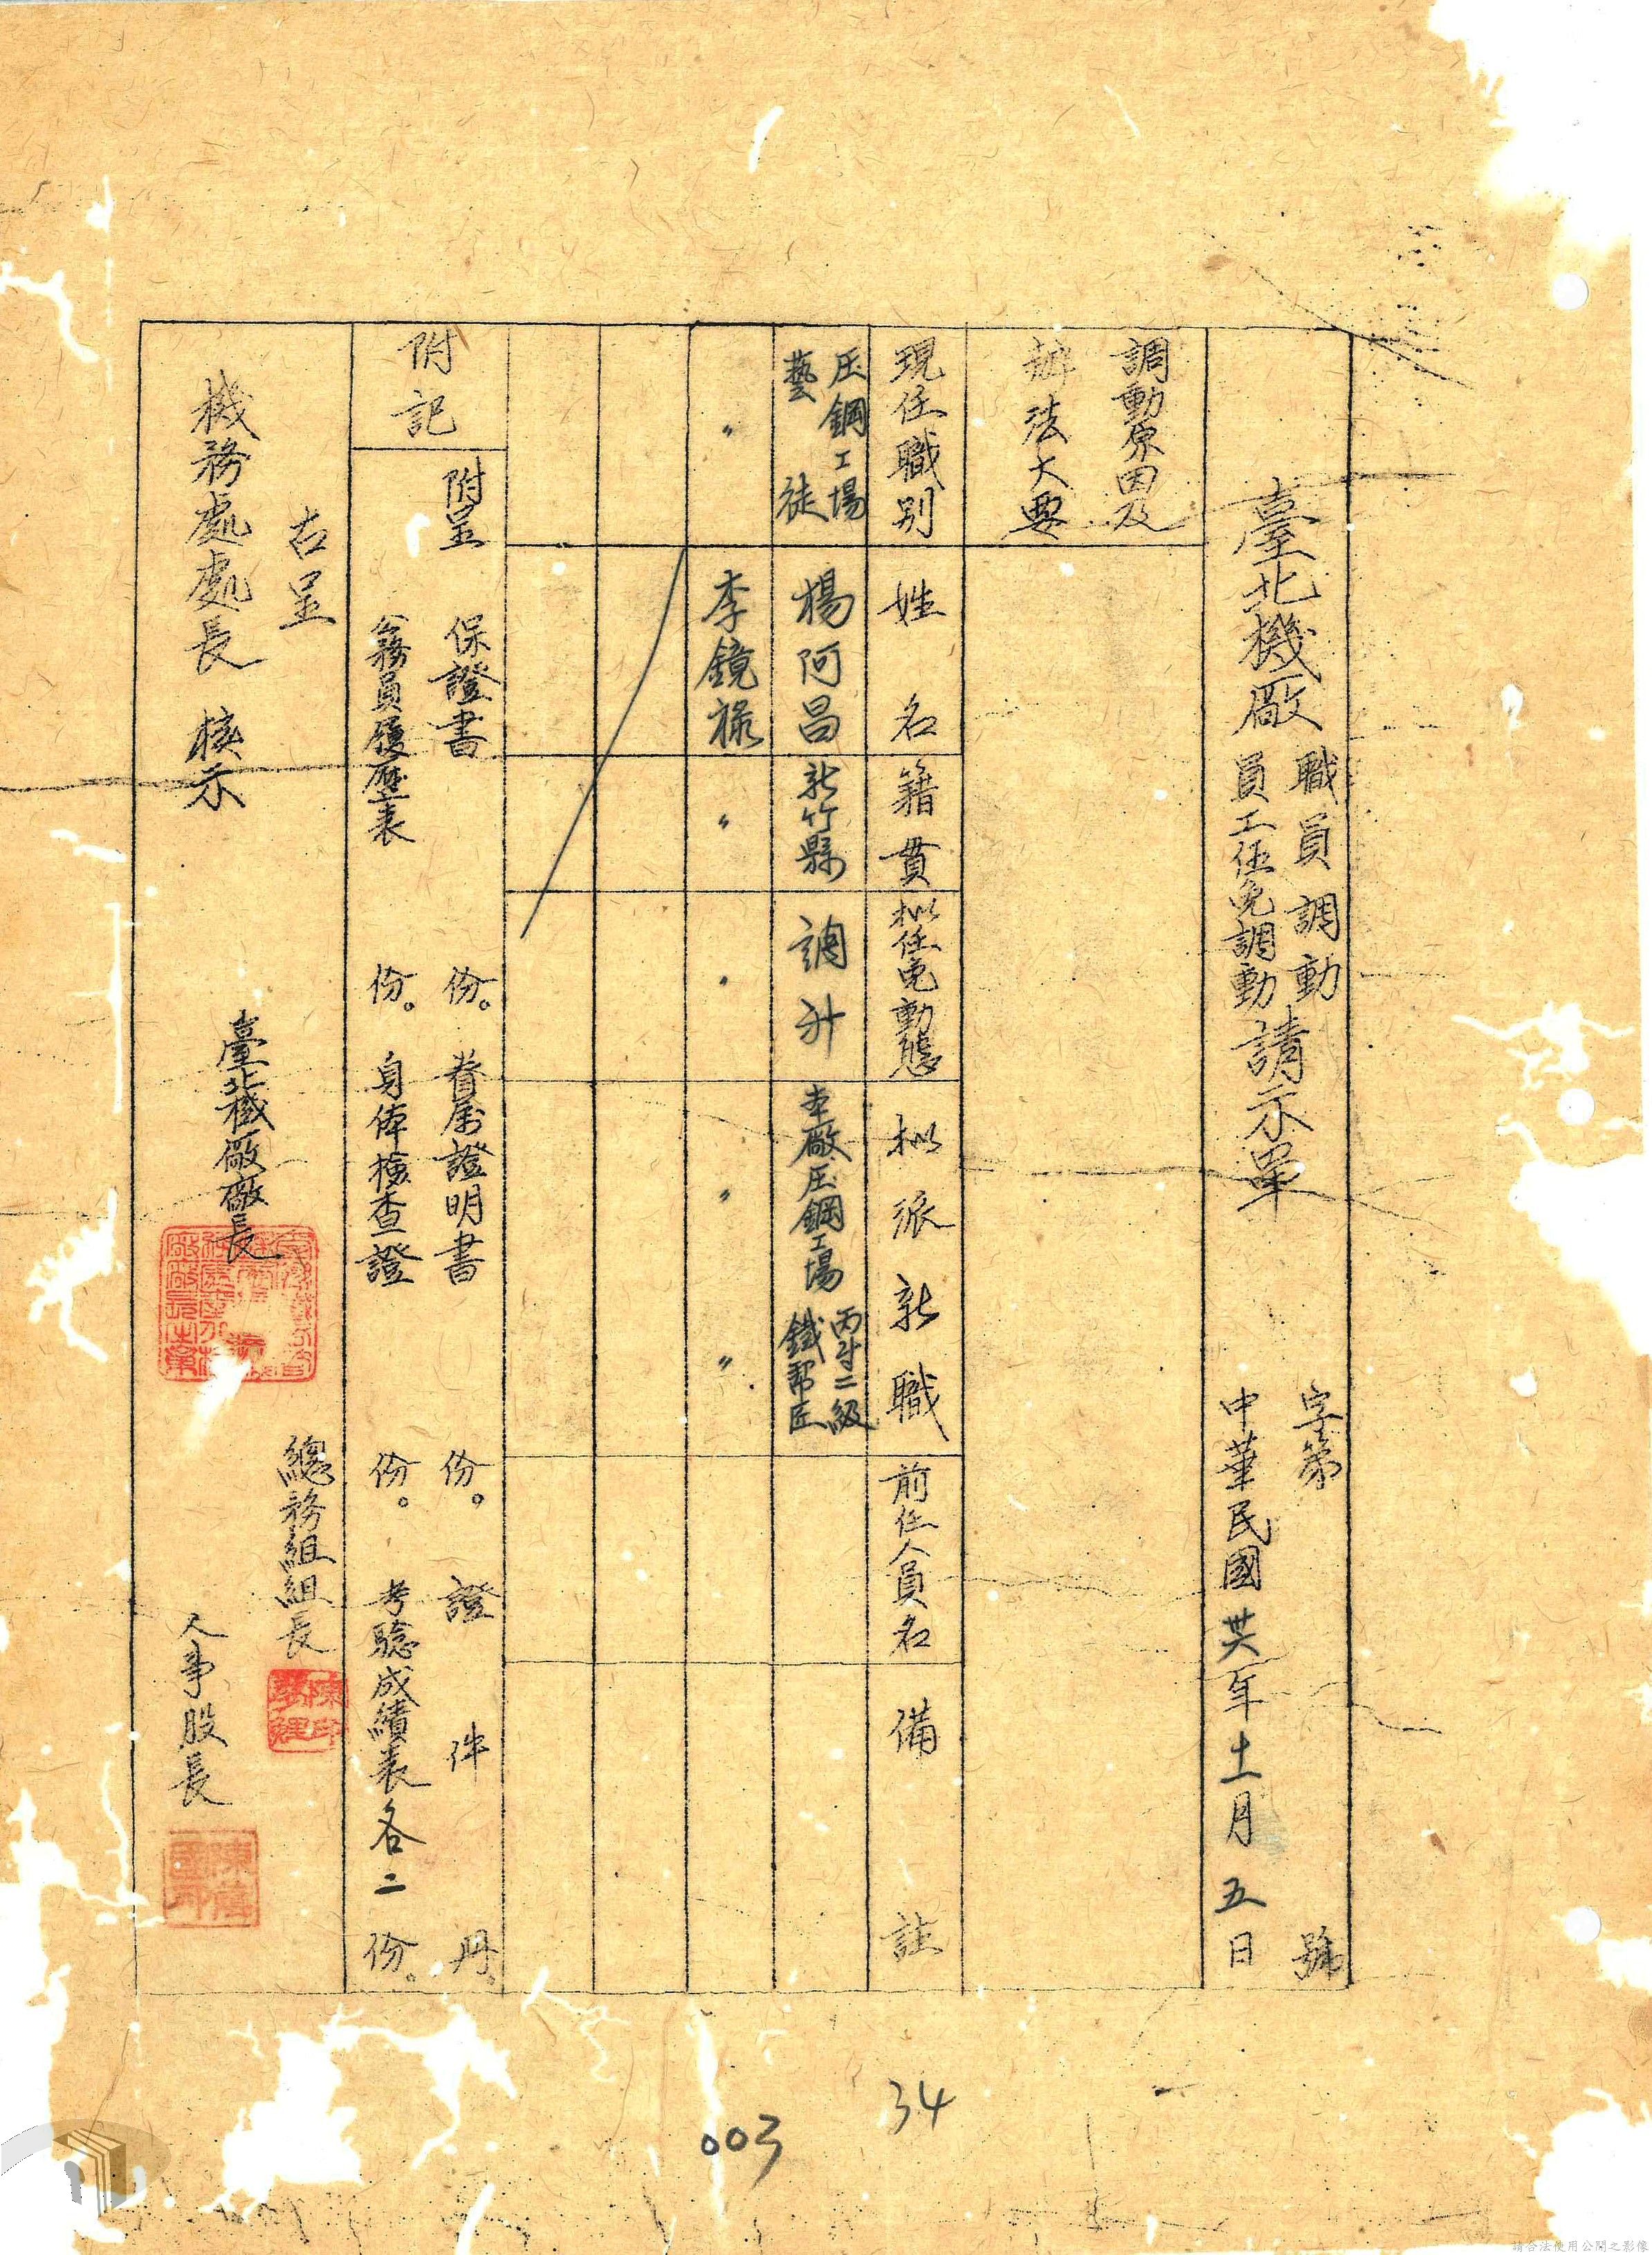 臺北機廠職員調動員工任免調動請示單
字第 號
中華民國卅六年十一月五日
調動原因及
辦法大要
現任職別 姓名 籍貫 拟任免動態 拟派新職 前任人員名 備註
压鋼工場藝徒 楊阿昌 新竹縣 調升 本廠压鋼工場 丙等二級鐵幇匠
〃 李鏡祿 〃 〃 〃 〃
附記
附呈 保證書 份。眷屬證明書 份。證件 冊。
公務員履歷表 份。身体檢查證 份。考驗成績表各二份。
右呈
機務處處長 核示
臺北機廠廠長
總務組組長
人事股長
34
003
請合法使用公開之影像